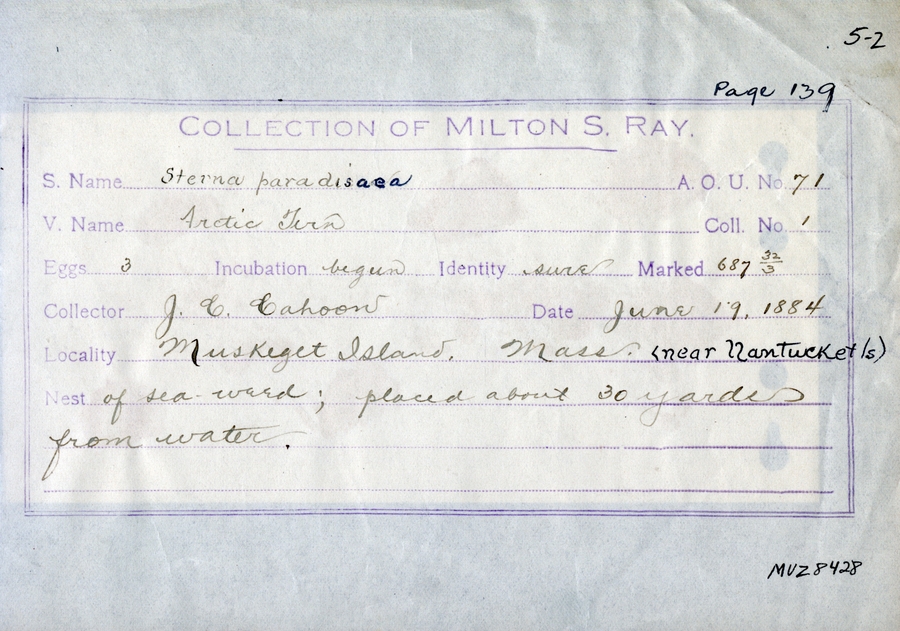 5-2
Page 139
COLLECTION OF MILTON S. RAY.
S. Name Sterna paradisaea A. O. U. No. 71
V. Name Arctic Tern Coll. No. 1
Eggs 3 Incubation begun Identity sure Marked 687 32/3
Collector J. C. Cahoon Date June 19, 1884
Locality Muskeget Island, Mass. (near Nantucket Is)
Nest of sea-weed; placed about 30 yards
from water.
MVZ 8428